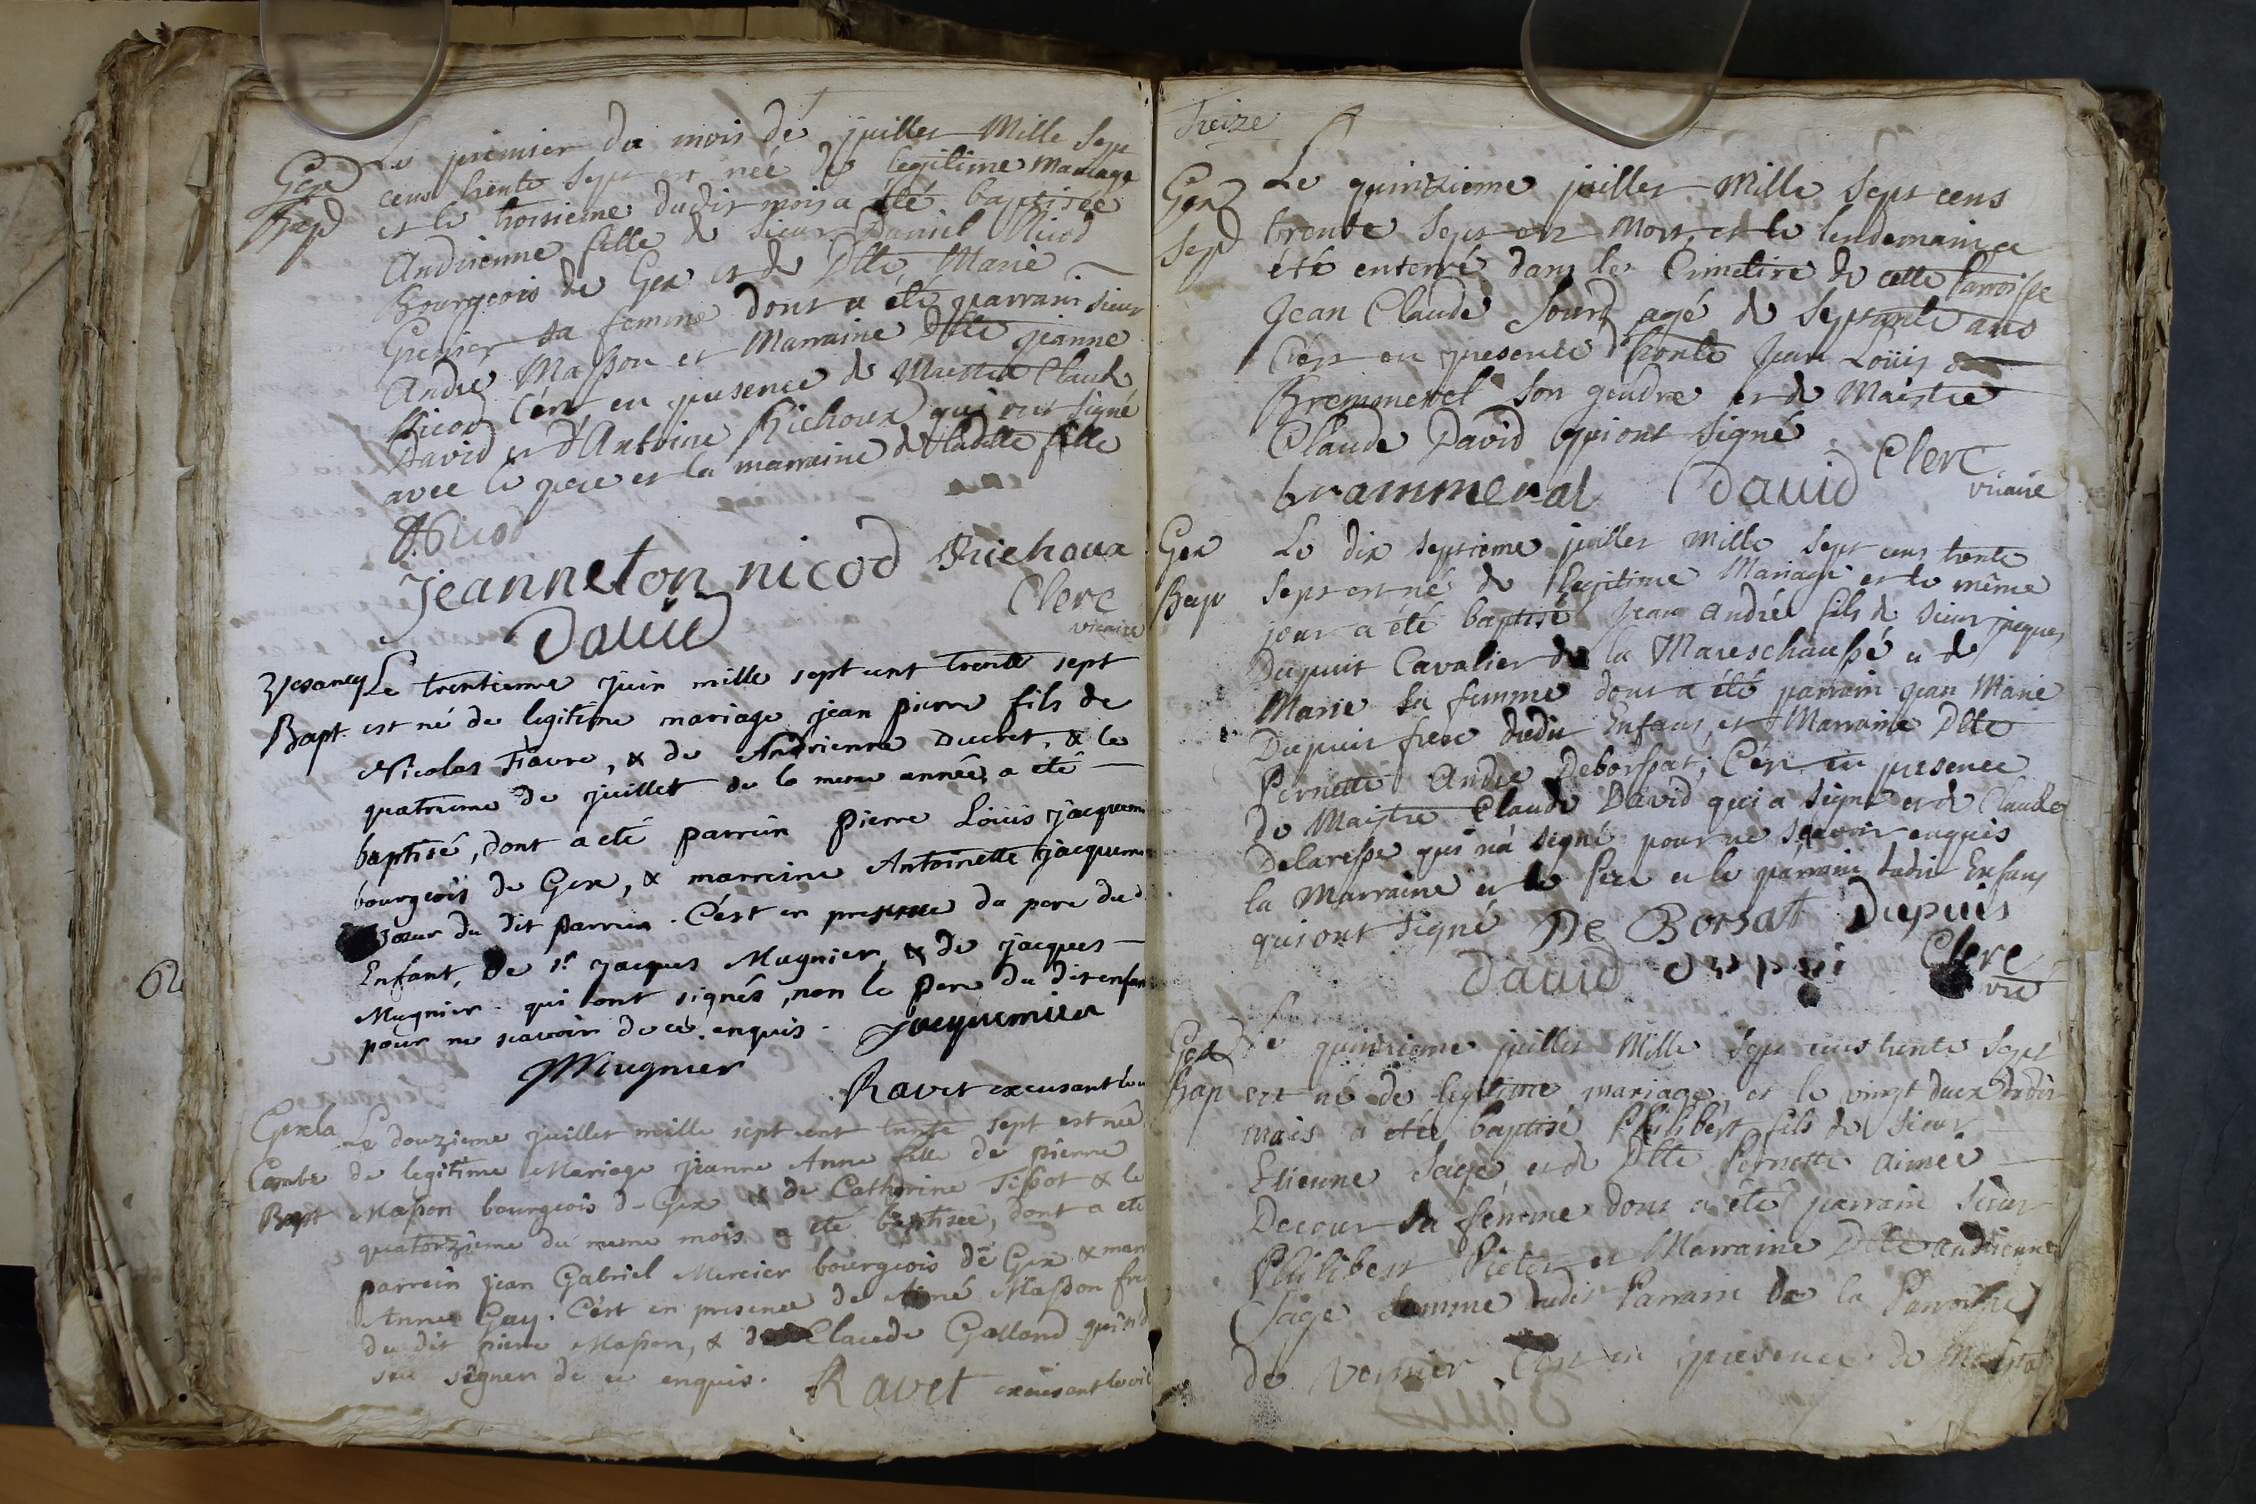 Gex
Bapt
Le premier du mois de juillet Mille Sept
cens trente Sept est née de legitime Mariage
et le troisieme dudit mois a été baptisée
Andrienne fille de Sieur Daniel Nicod
Bourgeois de Gex et de Dlle Marie
Grenier sa femme dont a été parrain Sieur
André Masson et Marraine Dlle jeanne
Nicod C'ést en presence de Maistre Claude
David et d'Antoine Richoux qui ont signé
avec le pere et la marraine de laditte fille
Nicod
Jeanneton nicod Richoux
David
Clerc
vicaire
Vesancy
Bapt.
Le trentieme juin mille sept cent trente sept
est né de legitime mariage jean pierre fils de
Nicolas Favre, & de Andrienne Ducret, & le
quatrieme de juillet de la meme année, a eté
baptisé, dont a eté parrein pierre Loüis jacquem
bourgeois de Gex, & marreine Antoinette jacquem
soeur du dit parrein. C'ést en presence du pere dud
Enfant, de Sr jacques Mugnier, & de jacques
Mugnier. qui ont signés, non le pere du dit enfan
pour ne scavoir de ce enquis. Jacquemier
Mugnier
Ravet excusant le vi
Gex la
Combe
Bapt
Le douzieme juillet mille sept cent trente sept est née
de legitime Mariage jeanne Anne fille de pierre
Masson bourgeois de Gex & de Catherine Tissot & le
quatorzieme du meme mois a eté baptisée, dont a eté
parrein jean Gabriel Mercier bourgeois de Gex & mar
Anne Gay. C'ést en presence de Aimé Masson fre
du dit pierre Masson, & de Claude Galland qui n'o
sçu signer de ce enquis. Ravet excusant le vic
62
Treize
Gex
Sep
Le quinzieme juillet Mille Sept cens
trente Sept est Mort, et le lendemain a
été enterré dans le Cimetire de cette Parroisse
Jean Claude Sourd agé de Septante ans
C'ést en presence d'honte Jean Loüis
Bremmeret Son gendre et de Maistre
Claude David qui ont signé
brammeral David Clerc
vicaire
Gex
Bap
Le dix Septieme juillet Mille Sept cens trente
Sept est né de legitime Mariage et le même
jour a été baptisé Jean André fils de Sieur jaques
Dupuit Cavalier de la Mareschaussé et de
Marie sa femme dont a été parrain jean Marie
Dupuit frere dudit Enfant, et Marraine Dlle
Pernette Andre Deborssat; C'ést en presence
de Maistre Claude David qui a Signé et de Claude
Delaresse qui n'a signé pour ne sçavoir enquis
la Marraine et le Pere et le parrain dudit Enfant
qui ont signé De Borsat Dupuis
David Clerc
vic
Gex
Bap
Le quinzieme juillet Mille Sept cens trente Sept
est né de legitime mariage, et le vingt deux dudit
mois a été baptisé Philibért fils de Sieur
Etienne Sage, et de Dlle Pernette Aimée
Decour sa femme dont a été parrain Sieur
Philibert Pictet et Marraine Dlle andrienne
Sage femme dudit Parrain de la Parroisse
de Vernier C'ést en presence de Maistre